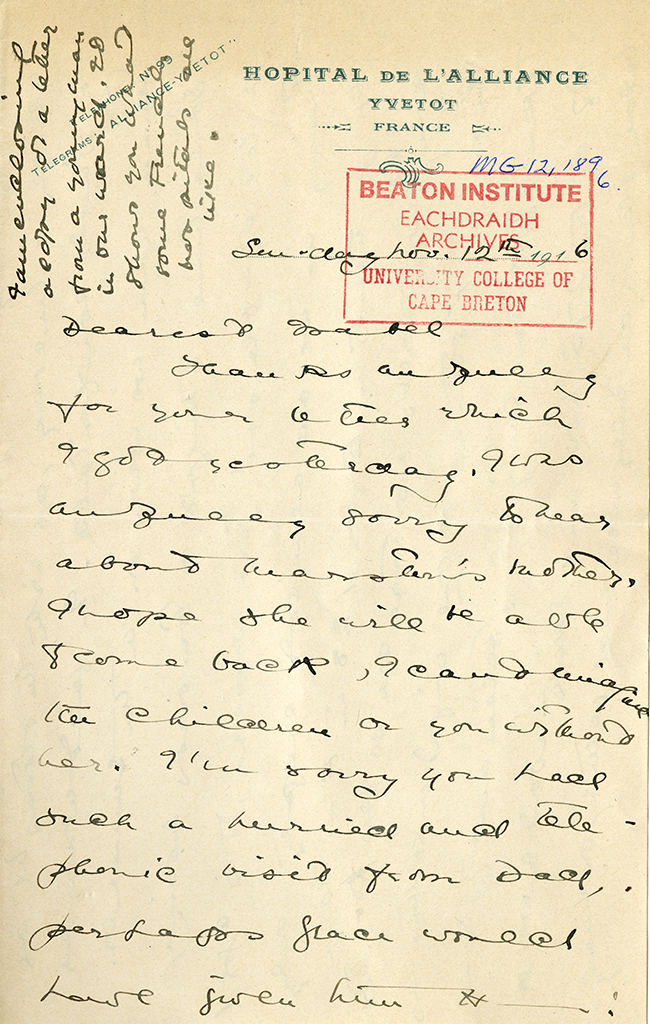 I am enclosing
a copy of a letter
from a young man
in our ward, to
show you what
some French
hospitals are
like.
TELEPHONE Nº 99
TELEGRAMS: ALLIANCE-YVETOT
HOPITAL DE L'ALLIANCE
YVETOT
FRANCE
MG 12, 189
6.
BEATON INSTITUTE
EACHDRAIDH
ARCHIVES
UNIVERSITY COLLEGE OF
CAPE BRETON
Sunday Nov. 12th 1916
Dearest Isabel
Thanks awfully
for your letter which
I got yesterday. I was
awfully sorry to hear
about Marston's mother.
I hope she will be able
to come back, I can't imagine
the children or you without
her. I'm sorry you had
such a hurried and tele-
phonic visit from Dad,
perhaps Grace would
have given him H——!